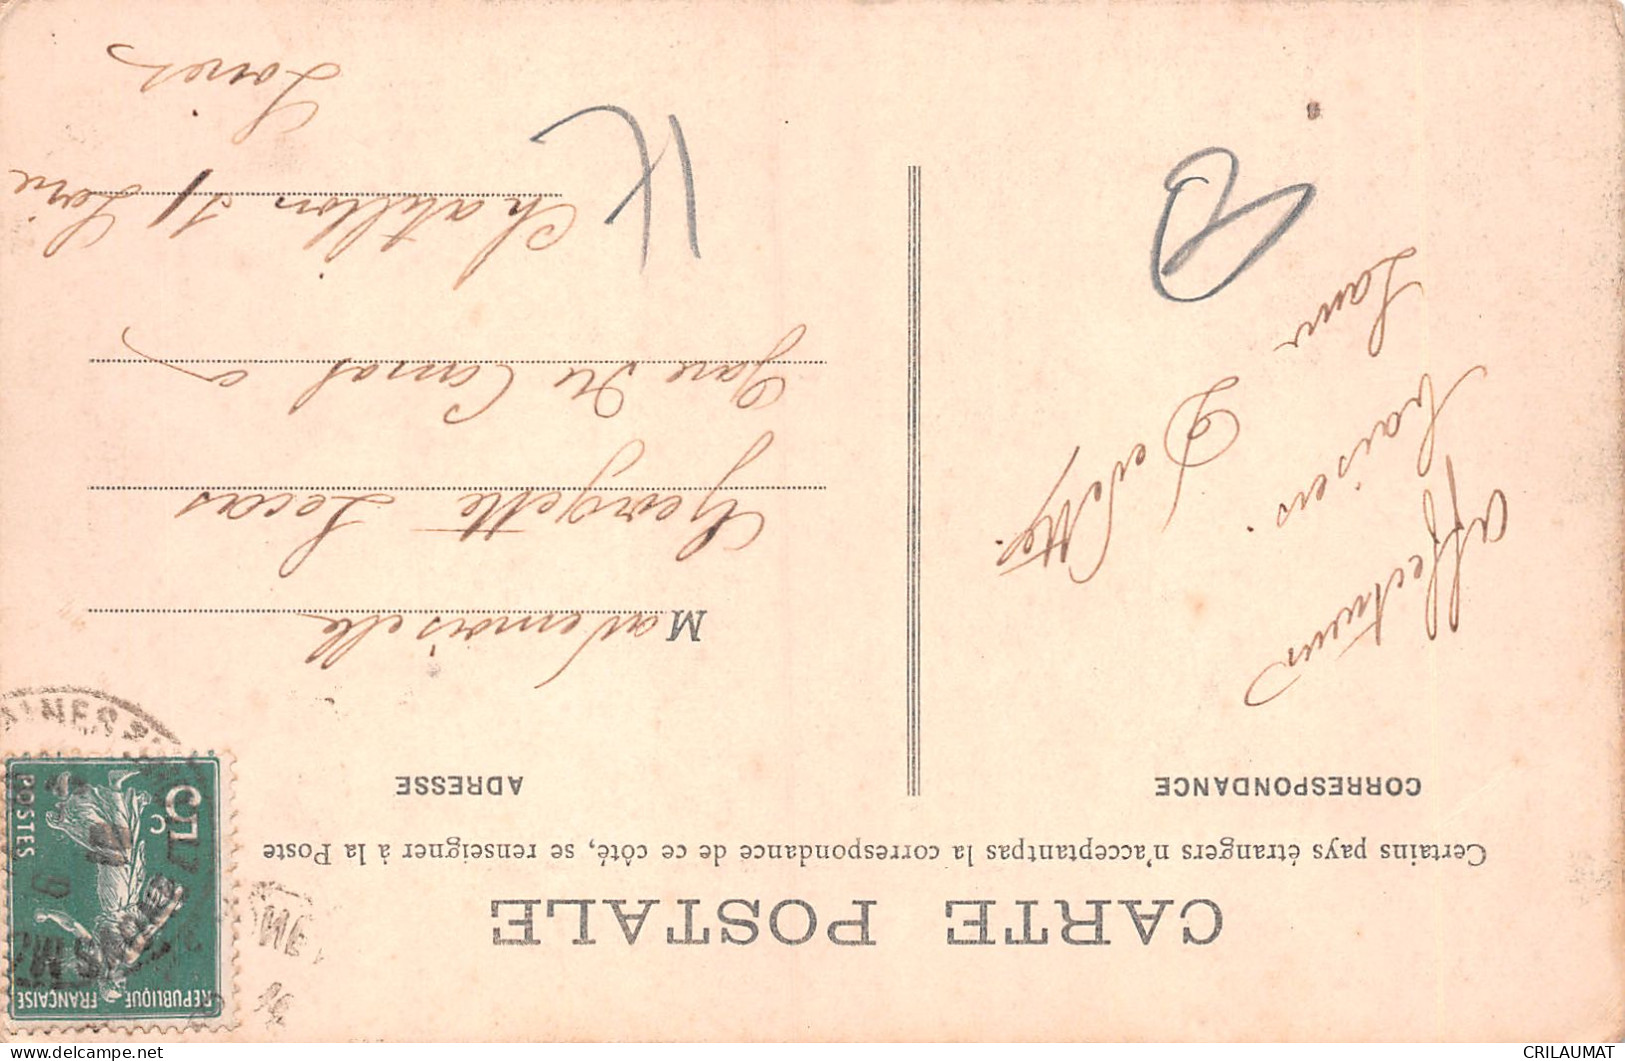 CARTE POSTALE
Certains pays étrangers n'acceptantpas la correspondance de ce côté, se renseigner à la Poste
CORRESPONDANCE
ADRESSE
Affectueux
baisers.
Laure
M ademoiselle
Georgette Lecas
Gare du Canal
Chatillon s/ Loire
Loiret
RÉPUBLIQUE FRANÇAISE
5c
POSTES
CRILAUMAT